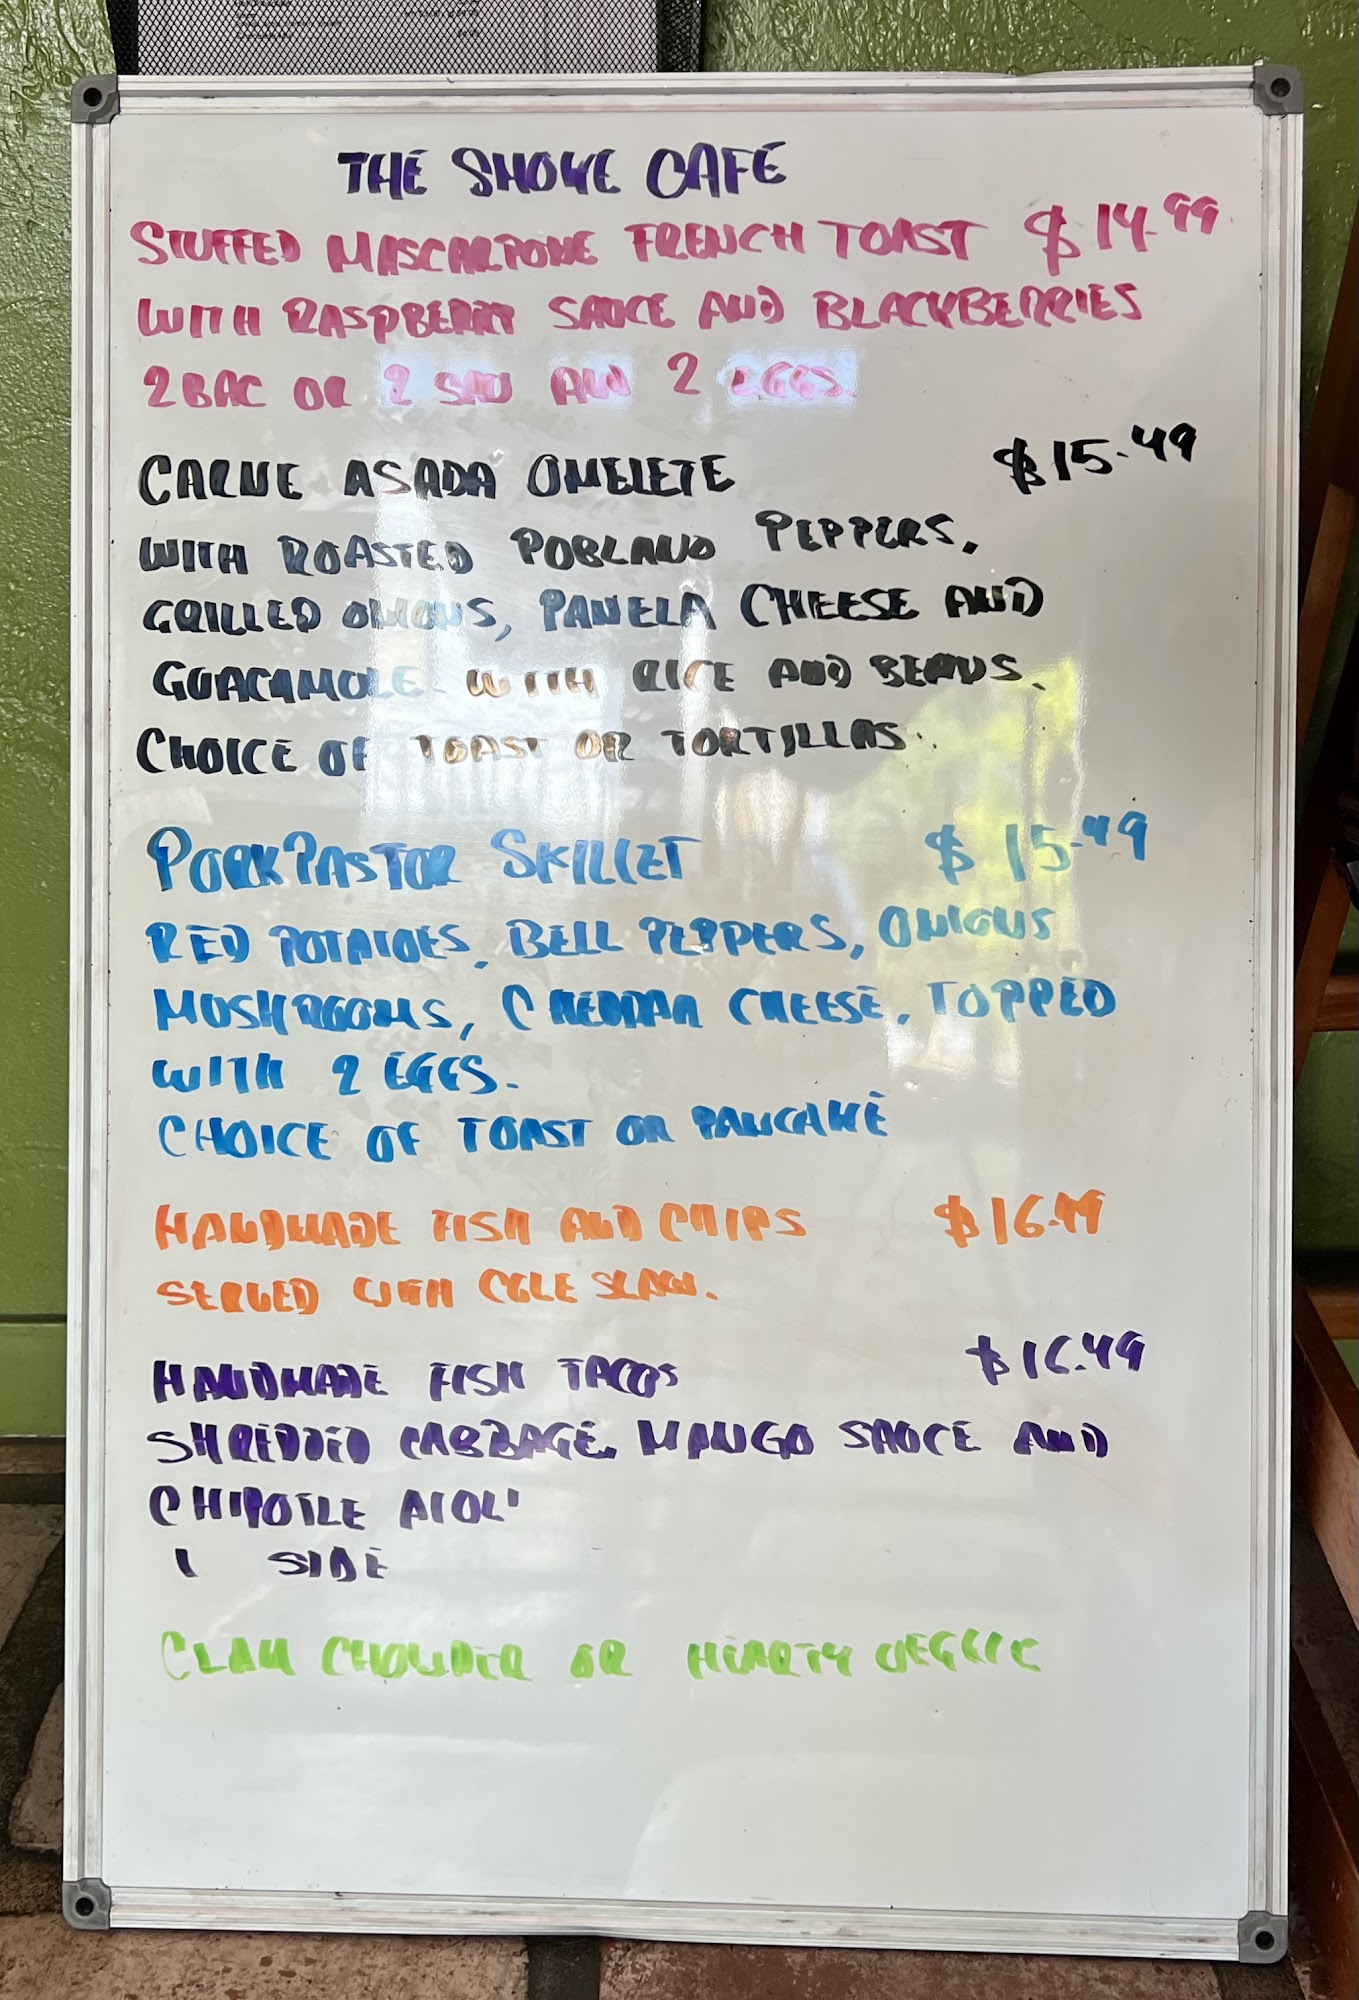 THE SMOKE CAFE
STUFFED MASCARPONE FRENCH TOAST $14.99
WITH RASPBERRY SAUCE AND BLACKBERRIES
2 BAC OR 2 SAU AND 2 EGGS.
CARNE ASADA OMELETE $15.49
WITH ROASTED POBLANO PEPPERS,
GRILLED ONIONS, PANELA CHEESE AND
GUACAMOLE WITH RICE AND BEANS.
CHOICE OF TOAST OR TORTILLAS.
PORK PASTOR SKILLET $15.49
RED POTATOES, BELL PEPPERS, ONIONS
MUSHROOMS, CHEDDAR CHEESE, TOPPED
WITH 2 EGGS.
CHOICE OF TOAST OR PANCAKE
HANDMADE FISH AND CHIPS $16.49
SERVED WITH COLE SLAW.
HANDMADE FISH TACOS $16.49
SHREDDED CABBAGE, MANGO SAUCE AND
CHIPOTLE AIOLI
1 SIDE
CLAM CHOWDER OR HEARTY VEGGIE